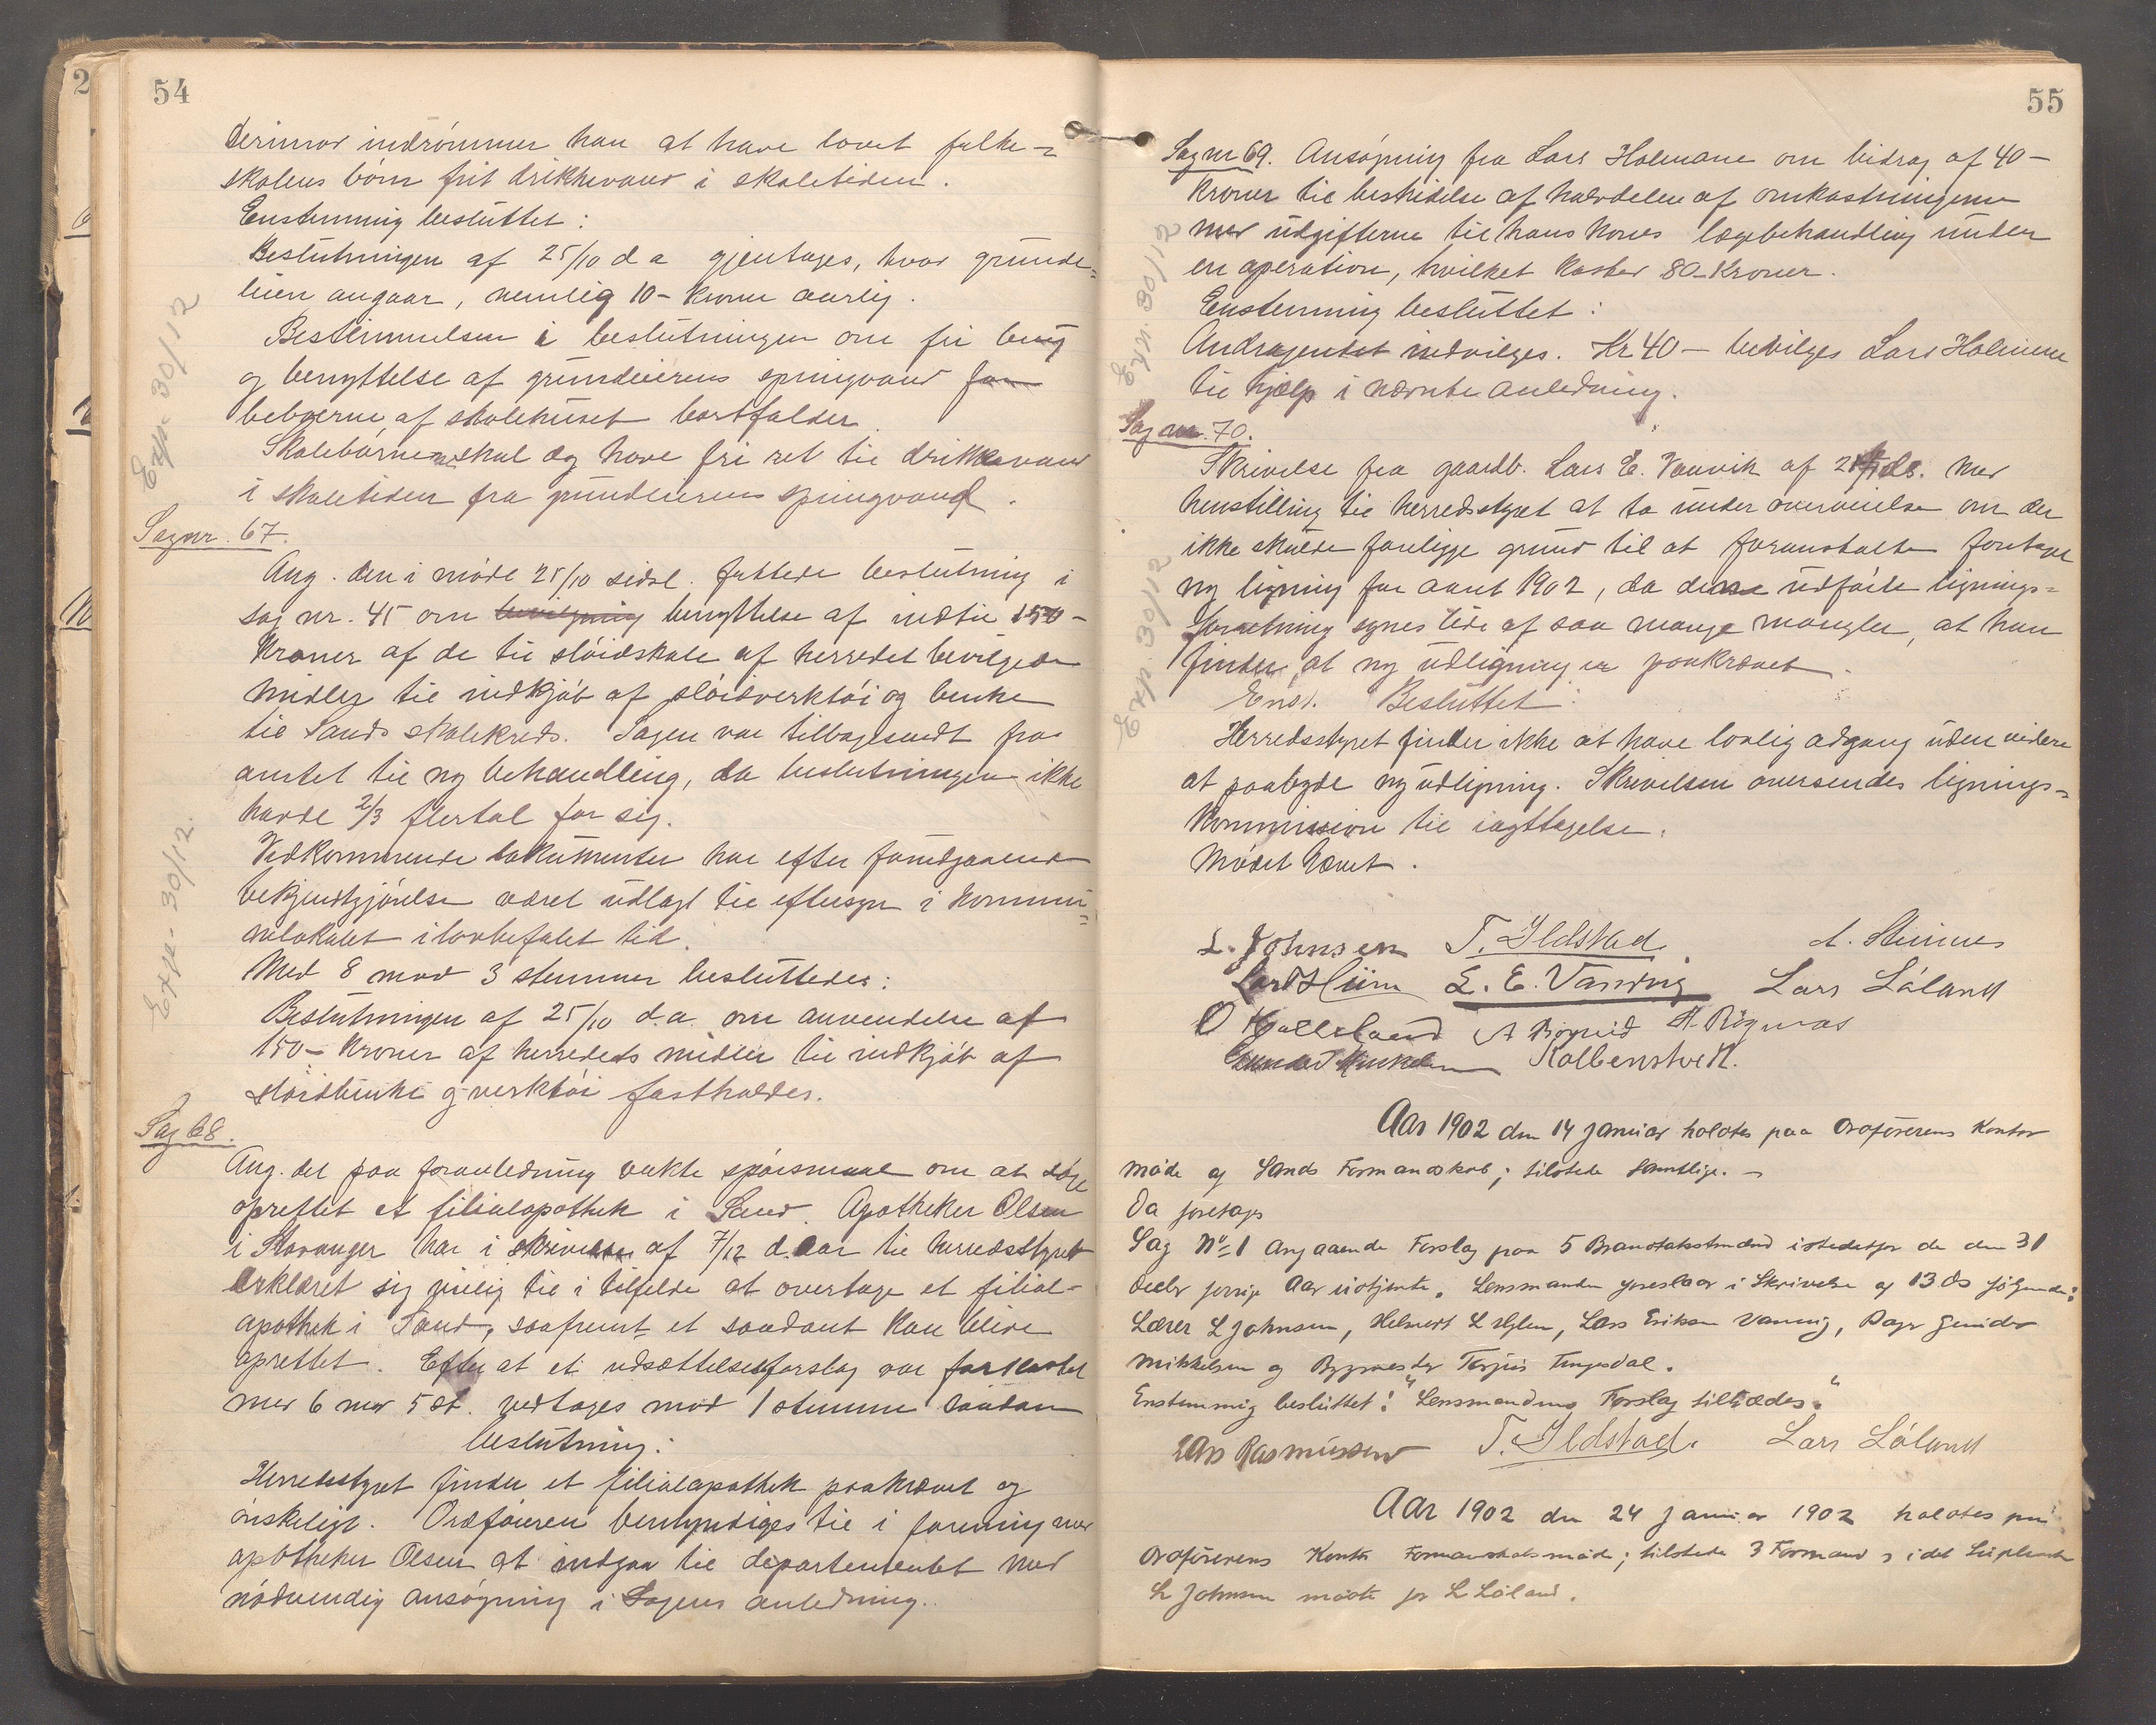 54
Derimod indrømmer han at have lovet folke-
skolens børn frit drikkevand i skoletiden.
Enstemmig besluttet:
Beslutningen af 25/10 d a gjentages, hvad grunde-
leien angaar, nemlig 10- kroner aarlig.
Bestemmelsen i beslutningen om fri brug
og benyttelse af grundeierens springvand for
beboerne af skolehuset bortfalder.
Skolebørnene skal dog have fri ret til drikkevand
i skoletiden fra grundeierens springvand.
Expr. 30/12
Sag nr. 67.
Ang. den i møde 25/10 sidstl. fattede beslutning i
sag nr. 45 om bevilgning benyttelse af indtil 150-
Kroner af de til sløidskole af herredet bevilgede
midler til indkjøb af sløidverktøi og benke
til Sands skolekreds. Sagen var tilbagesendt fra
amtet til ny behandling, da beslutningen ikke
havde 2/3 flertal for sig.
Vedkommende dokumenter har efter forudgaaende
bekjendtgjørelse været udlagt til eftersyn i kommu-
nelokalet i lovbefalet tid.
Med 8 mod 3 stemmer besluttedes:
Beslutningen af 25/10 d.a. om anvendelse af
150- Kroner af herredets midler til indkjøb af
sløidbenke og verktøi fastholdes.
Expr. 30/12.
Sag 68.
Ang. det paa foranledning vakte spørsmaal om at søge
oprettet et filialapothek i Sand. Apotheker Olsen
i Stavanger har i skrivelse af 7/12 d. aar til herredsstyret
erklæret sig villig til i tilfelde at overtage et filial-
apothek i Sand, saafremt et saadant kan blive
oprettet. Efter at et udsættelsesforslag var forkastet
med 6 mod 5 st. vedtages mod 1 stemme saadan
beslutning:
Herredsstyret finder et filialapothek paakrævet og
ønskeligt. Ordføreren bemyndiges til i forening med
apotheker Olsen at indgaa til departementet med
nødvendig ansøgning i Sagens anledning.
55
Sag nr 69. Ansøgning fra Lars Holmane om bidrag af 40-
Kroner til bestridelse af halvdelen af omkostningerne
med udgifterne til hans kones lægebehandling under
en operation, hvilket koster 80- Kroner.
Enstemmig besluttet:
Andragendet indvilges. Kr 40- bevilges Lars Holmane
til hjælp i nævnte anledning.
Exp. 30/12
Sag nr. 70.
Skrivelse fra gaardb. Lars E. Vanvik af ds. med
henstilling til herredsstyret at ta under overveielse om der
ikke skulde foreligge grund til at foranstalte foretaget
ny ligning for aaret 1902, da denne udførte lignings-
forretning synes lide af saa mange mangler, at han
finder, at ny udligning er paakrævet.
Enst. Besluttet:
Herredsstyret finder ikke at have lovlig adgang uden videre
at paabyde ny udligning. Skrivelsen oversendes lignings-
kommission til iagttagelse.
Mødet hævet.
Exp. 30/12
L. Johnsen T. Ildstad A. Steinnes
Lars Hiim L. E. Vanvig Lars Løland
O Gunder Mikkelsen Kolbenstvedt.
Aar 1902 den 14 Januar holdtes paa Ordførerens Kontor
møde af Sands Formandskab; tilstede samtlige. -
Da foretoges
Sag No 1 Angaaende Forslag paa 5 Branntakstmænd istedetfor de den 31
Decbr forrige Aar udtjente. Lensmanden foreslaar i Skrivelse af 13 ds følgende:
Lærer L Johnsen, Helmert L Hylen, Lars Eriksen Vanvig, Gunder
Mikkelsen og Bygmester Terjus Tengesdal.
Enstemmig besluttet: "Lensmandens Forslag tiltrædes."
Lars Rasmussen T. Ildstad. Lars Løland
Aar 1902 den 24 Januar 1902 holdtes paa
Ordførerens Kontor Formandskabsmøde; tilstede 3 Formænd idet Suplent
L Johnsen mødte for L Løland.